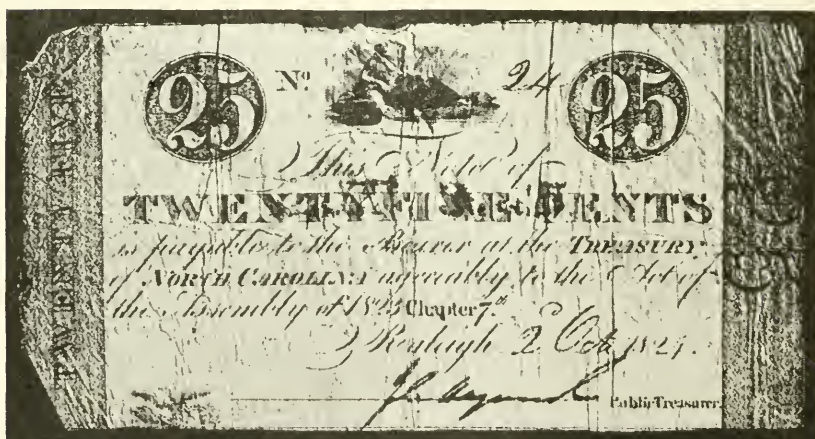 25 Nº 24 25
This Note of
TWENTY FIVE CENTS
is payable to the Bearer at the TREASURY
of NORTH CAROLINA agreeably to the Act of
the Assembly of 1823 Chapter 7.th
Raleigh 2 Oct. 1824.
Public Treasurer.
TWENTY FIVE